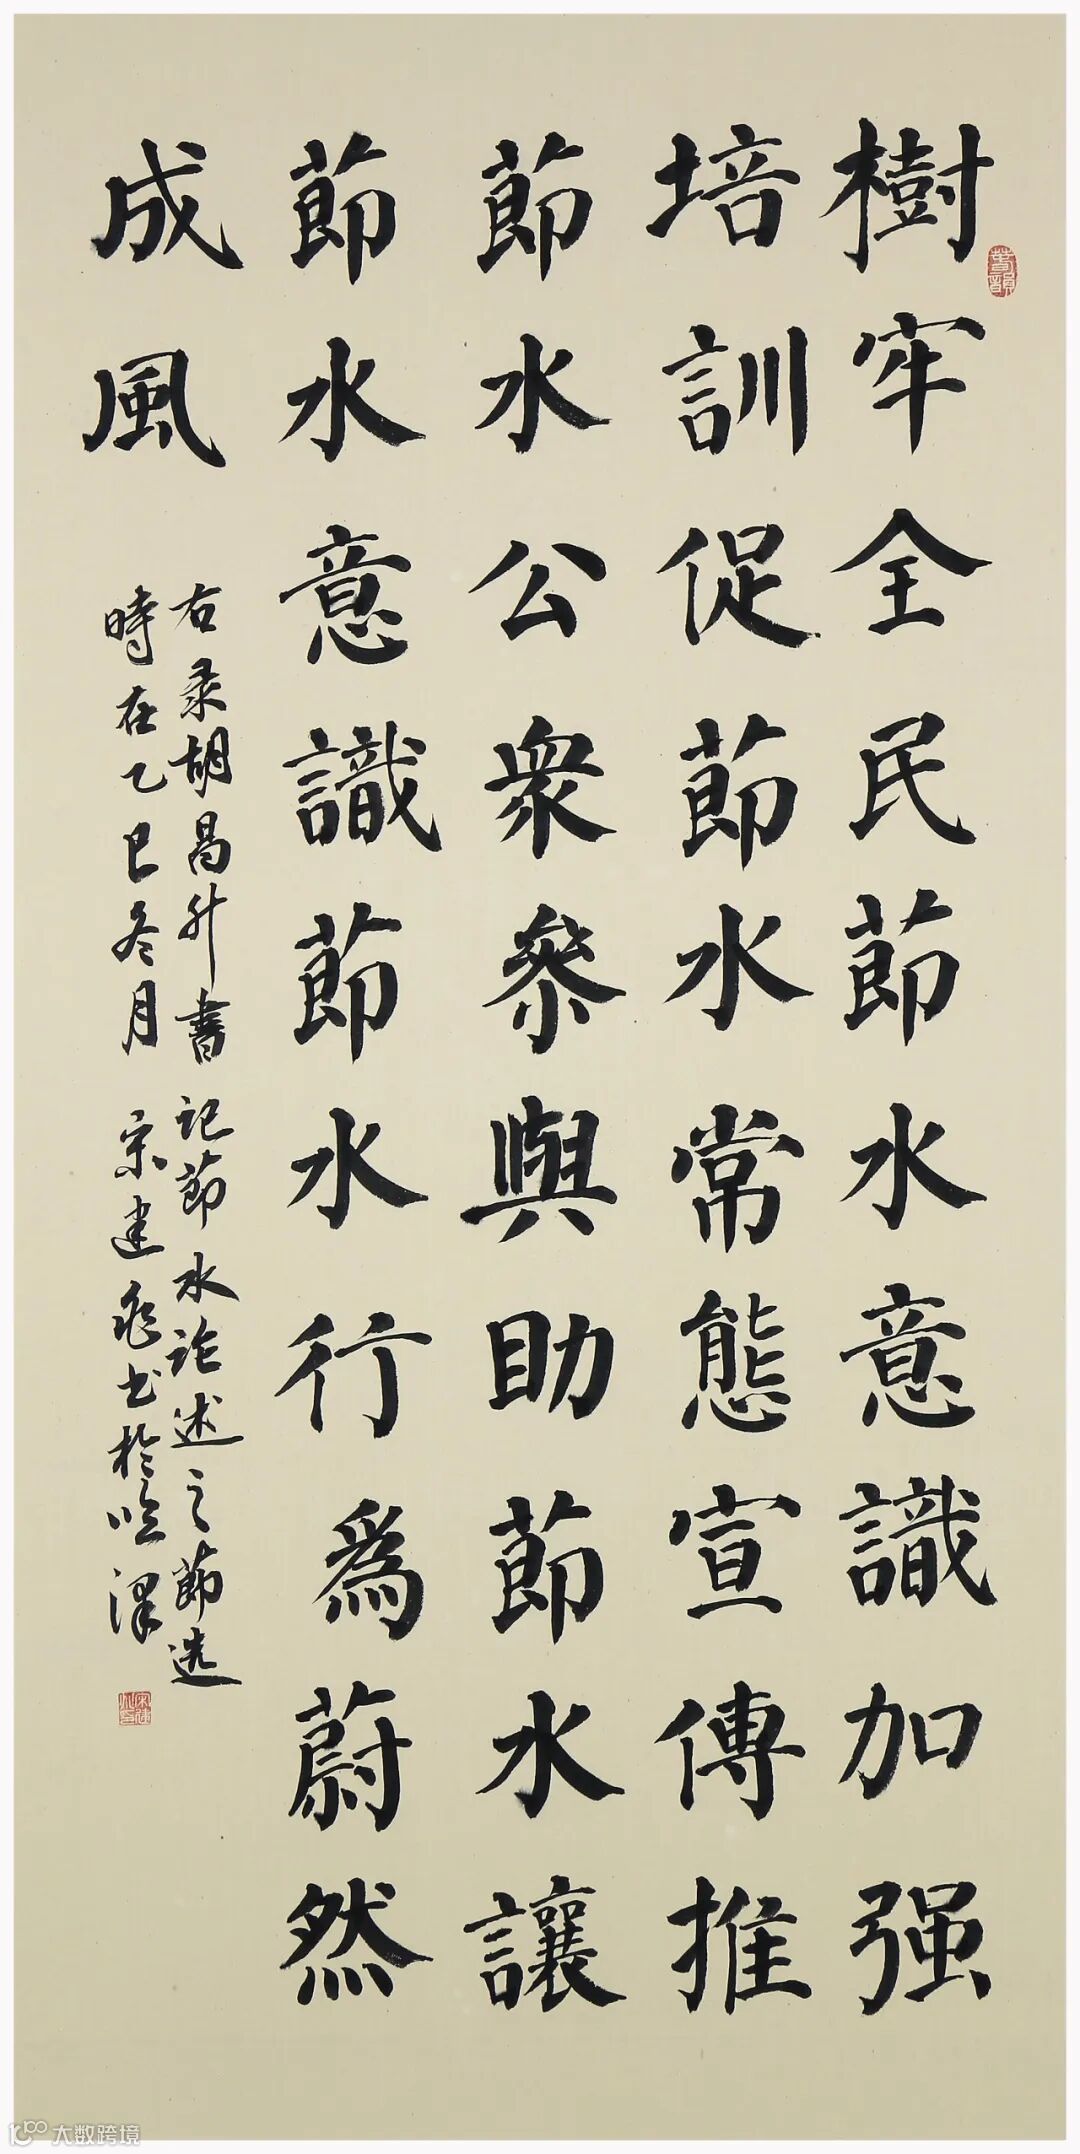 樹牢全民節水意識加强
培訓促節水常態宣傳推
節水公衆參與助節水讓
節水意識節水行爲蔚然
成風
右录胡昌升書記節水论述之節选
時在乙巳冬月 宋建 书於 澤
大数跨境